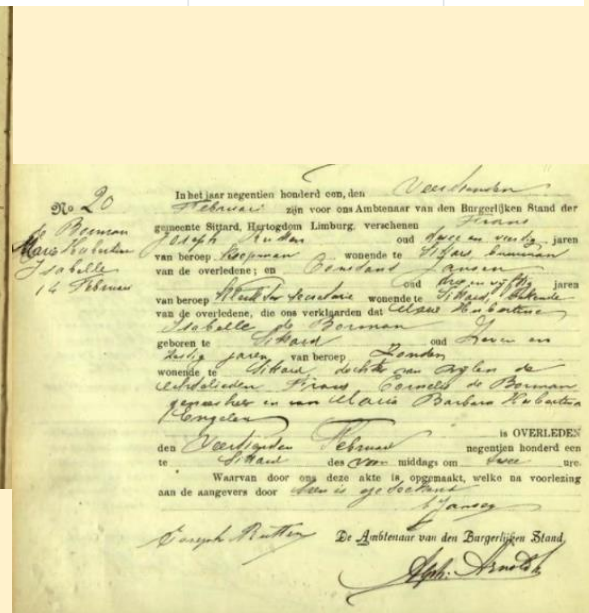 No 20
de Borman
Maria Hubertina
Isabelle
14 Februari
In het jaar negentien honderd een, den Veertienden
Februari zijn voor ons Ambtenaar van den Burgerlijken Stand der
gemeente Sittard, Hertogdom Limburg, verschenen Frans
Joseph Rutten oud en veertig jaren
van beroep Koopman wonende te Sittard, buurman
van de overledene; en Constant Jansen
oud drie en vijftig jaren
van beroep ter Secretarie wonende te Sittard, bekende
van de overledene, die ons verklaarden dat Maria Hubertina
Isabelle de Borman
geboren te Sittard oud Zeven en
zestig jaren van beroep Zonder
wonende te Sittard dochter van wijlen de
echtelieden Frans Cornelis de Borman
geneesheer en van Maria Barbara Hubertina
Engelen
is OVERLEDEN
den Veertienden Februari negentien honderd een
te Sittard des voor middags om twee ure.
Waarvan door ons deze akte is opgemaakt, welke na voorlezing
aan de aangevers door hen is geteekend
Jansen
Joseph Rutten De Ambtenaar van den Burgerlijken Stand,
Alph. Arnoldts